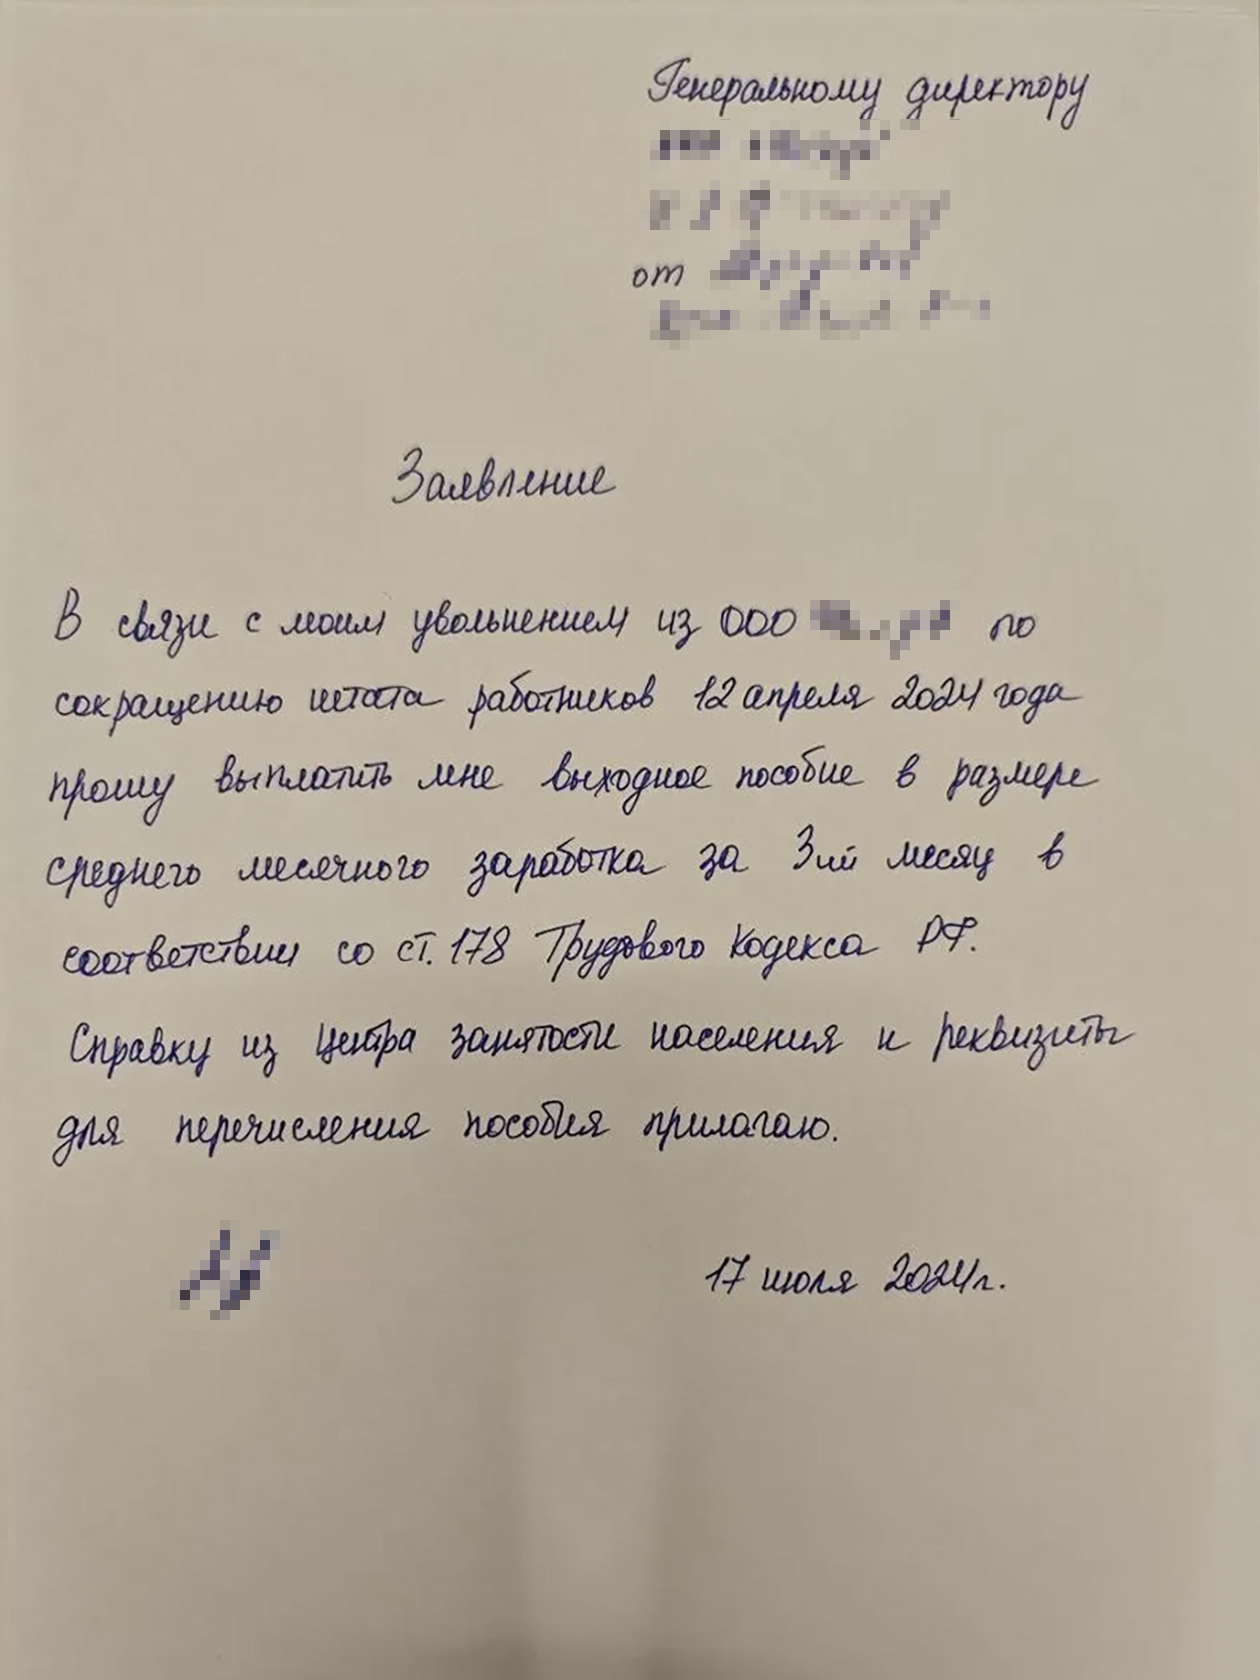 Генеральному директору
от
Заявление
В связи с моим увольнением из ООО по
сокращению штата работников 12 апреля 2024 года
прошу выплатить мне выходное пособие в размере
среднего месячного заработка за 3ий месяц в
соответствии со ст. 178 Трудового Кодекса РФ.
Справку из Центра занятости населения и реквизиты
для перечисления пособия прилагаю.
17 июля 2024г.